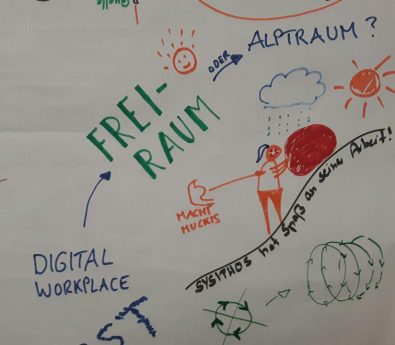 ALPTRAUM?
ODER
FREI-
RAUM
MACHT
MUCKIS
SYSITHOS hat Spaß an seiner Arbeit!
DIGITAL
WORKPLACE